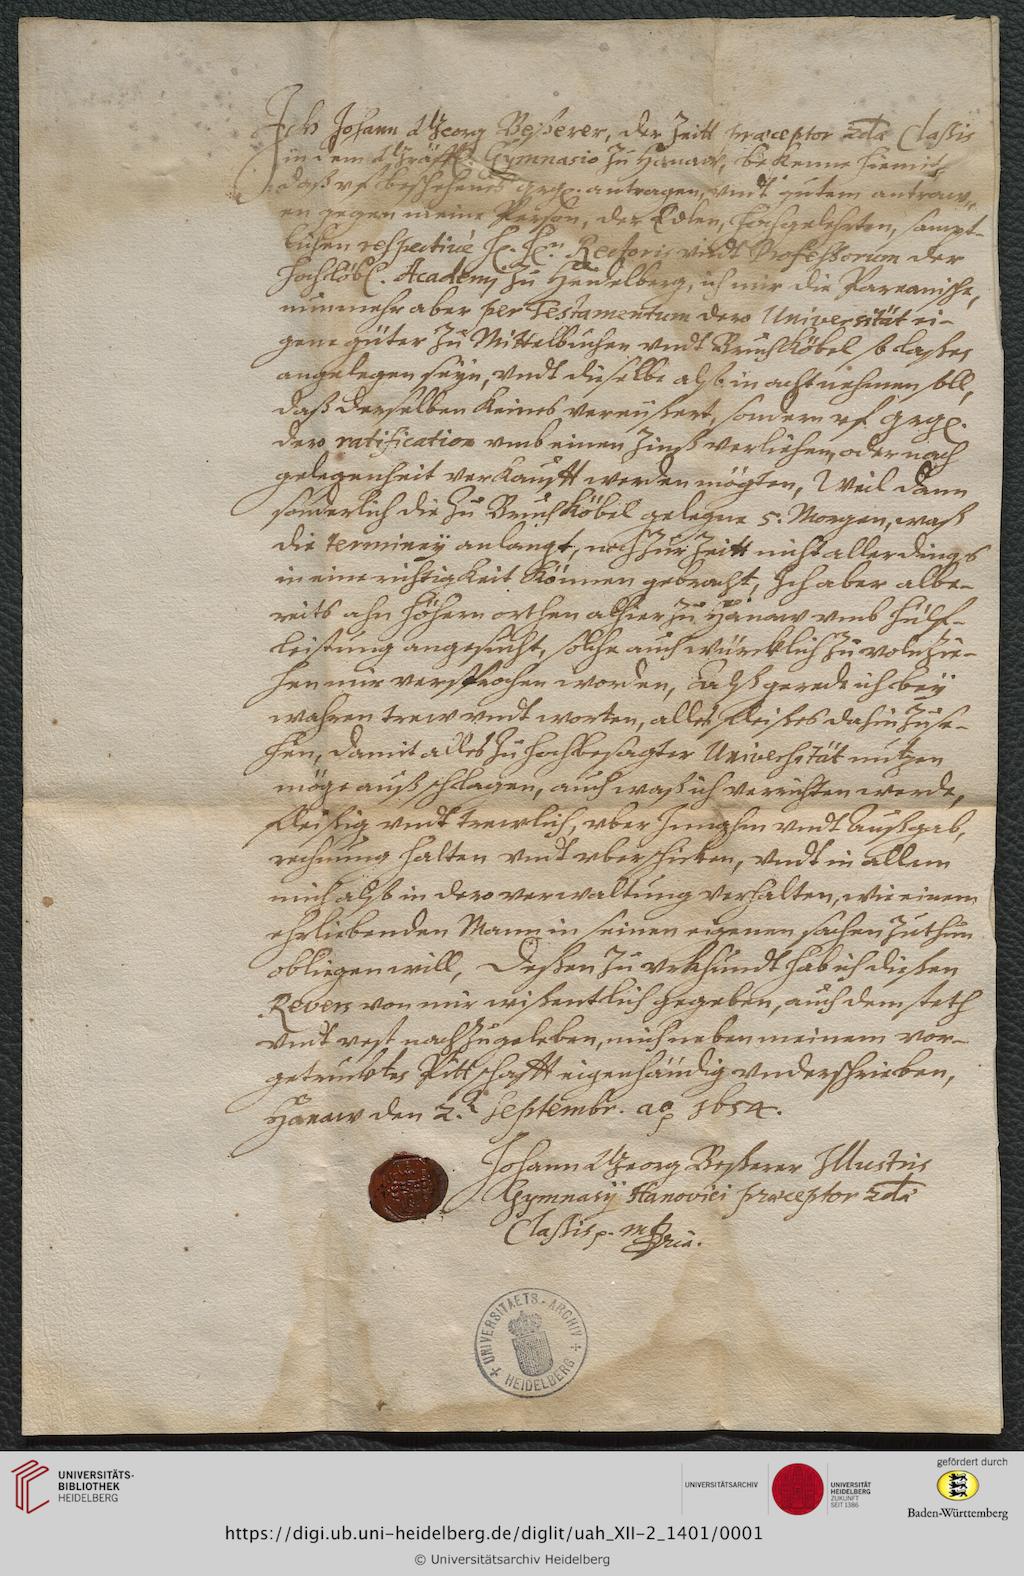 Ich Johann Georg Beßerer, der Zeitt præceptor 2dæ Claßis
in dem Gräffl. Gymnasio zu Hanaw, bekenne hiemit,
daß vf beschehenes antragen, vndt gutem antraw-
en gegen meine Person, der Edlen, Hochgelehrten, sampt-
lichen respectivè H. Hn. Rectoris vndt Professorum der
hochlöbl. Academy zu Heydelberg, ich mir die Pareanische,
nunmehr aber per Testamentum dero Universität ei-
gene güter zu Mittelbuchen vndt Bruchköbel
angelegen seyn, vndt dieselbe alßo in acht nehmen soll,
daß derselben keines vereüßert, sondern vf
dero ratification vmb einen Zinß verliehen, oder nach
gelegenheit verkaufft werden mögten, Weil dann
sonderlich die zu Bruchköbel gelegne 5. Morgen, waß
die terminey anlangt, noch zur Zeitt nicht allerdings
in eine richtigkeit können gebracht, Ich aber albe-
reits ahn höhern orthen alhier zu Hanaw vmb hülf-
leistung angesucht, solche auch würcklich zu volnzie-
hen mir versprochen worden, Alß gerede ich bey
wahren trew vndt worten, alles fleißes dahin zu se-
hen, damit alles zu hochbesagter Universität nutzen
möge außschlagen, auch waß ich verrichten werde,
fleißig vndt trewlich, vber Innahm vndt Außgab,
rechnung halten vndt vberschicken, vndt in allem
mich alßo in dero verwaltung verhalten, wie einem
ehrliebenden Mann in seinen eigenen sachen zuthun
obliegen will, Deßen zu vrkhundt hab ich dießen
Revers von mir wißentlich gegeben, auch dem steth
vndt vest nachzugeleben, mich neben meinem vor-
getrucktes Pittschafft eigenhändig vnderschrieben,
Hanaw den 2. Septembr. ao 1654.
Johann Georg Beßerer Illustris
Gymnasij Hanovici præceptor 2dæ
Claßis p. mppria.
UNIVERSITAETS-ARCHIV
HEIDELBERG
UNIVERSITÄTS-
BIBLIOTHEK
HEIDELBERG
UNIVERSITÄTSARCHIV
UNIVERSITÄT
HEIDELBERG
ZUKUNFT
SEIT 1386
gefördert durch
Baden-Württemberg
https://digi.ub.uni-heidelberg.de/diglit/uah_XII-2_1401/0001
© Universitätsarchiv Heidelberg